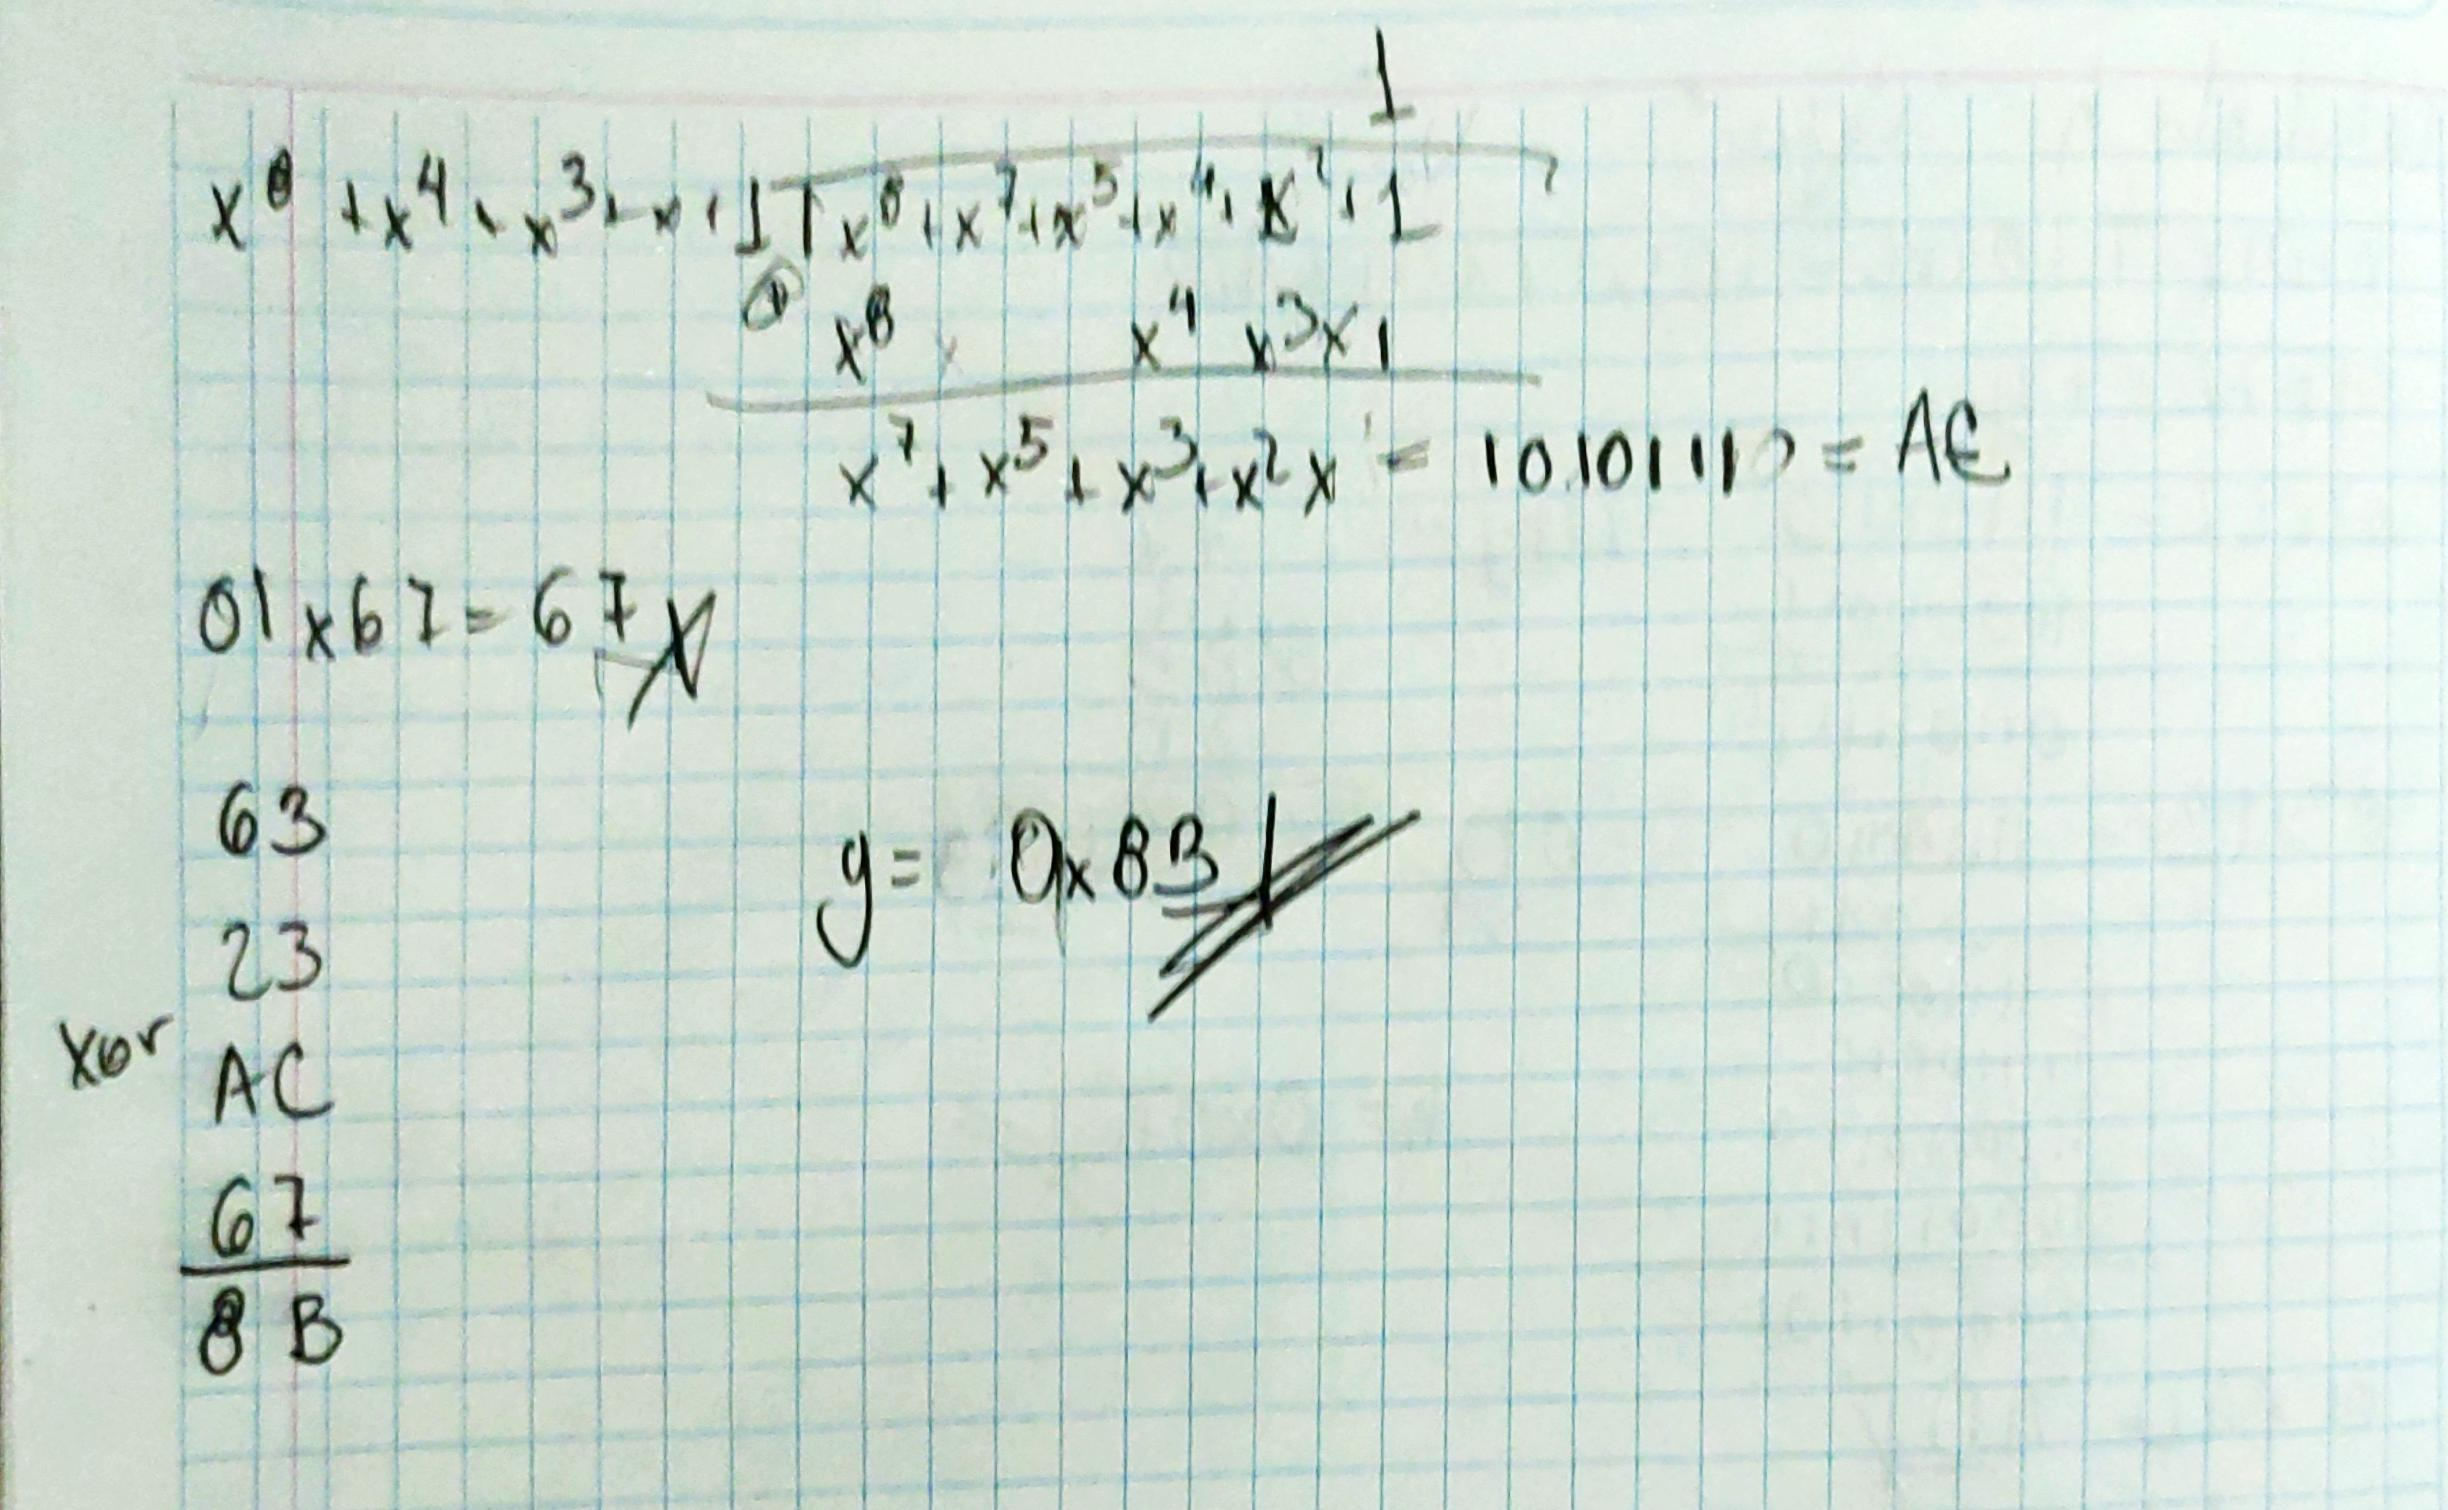 1
x⁸ + x⁴ + x³ + x + 1 | x⁸ + x⁷ + x⁵ + x⁴ + x² + 1
⊕ x⁸ x⁴ x³ x 1
x⁷ + x⁵ + x³ + x² x = 10101110 = AE
01 x 67 = 67
63
23
xor AC
67
8B
y = 0x8B